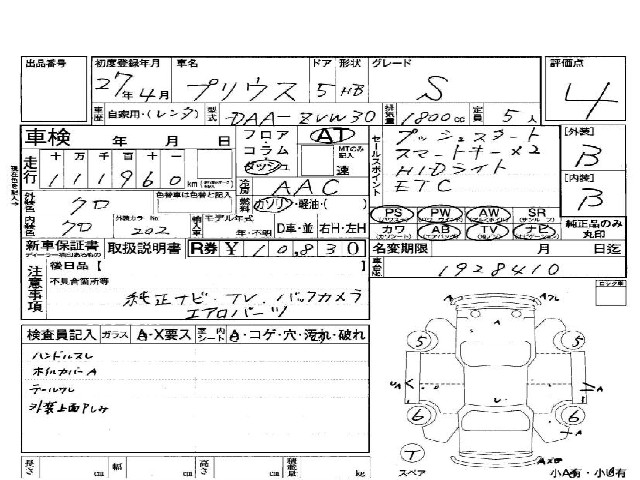 出品番号 初度登録年月 車名 ドア 形状 グレード 評価点
27年4月 プリウス 5 HB S 4
車歴 自家用・(レンタ) 型式 DAA-ZVW30 排気量 1800cc 定員 5人
車検 年 月 日 フロア AT [外装]
コラム MTのみ記入 B
ダッシュ 速
走行 十万千百十一
111960km
セールスポイント プッシュスタート
スマートキー×2
HIDライト
ETC
冷房 AAC [内装]
B
外装色 クロ 色替車は色替と記入 燃料 ガソリン・軽油・( )
内装色 クロ 外装カラーNo 202 輸入車 モデル年式 年・不明 D車・並 右H・左H
PS PW AW SR
カワ AB TV ナビ 純正品のみ丸印
新車保証書 取扱説明書 R券 ¥10,830 名変期限 月 日迄
車台No. 1928410
注意事項 後日品【
不具合箇所等
純正ナビ・TV・バックカメラ
エアロパーツ
検査員記入 ガラス A・X要ス 室内シート A・コゲ・穴・汚れ・破れ
ハンドルスレ
ホイルカバーA
テールスレ
外装上面クしみ
A A フレ
A
5 5
UA A
6 6
A
T
スペア
A
小A有・小U有
長さ cm 幅 cm 高さ cm 積載量 kg